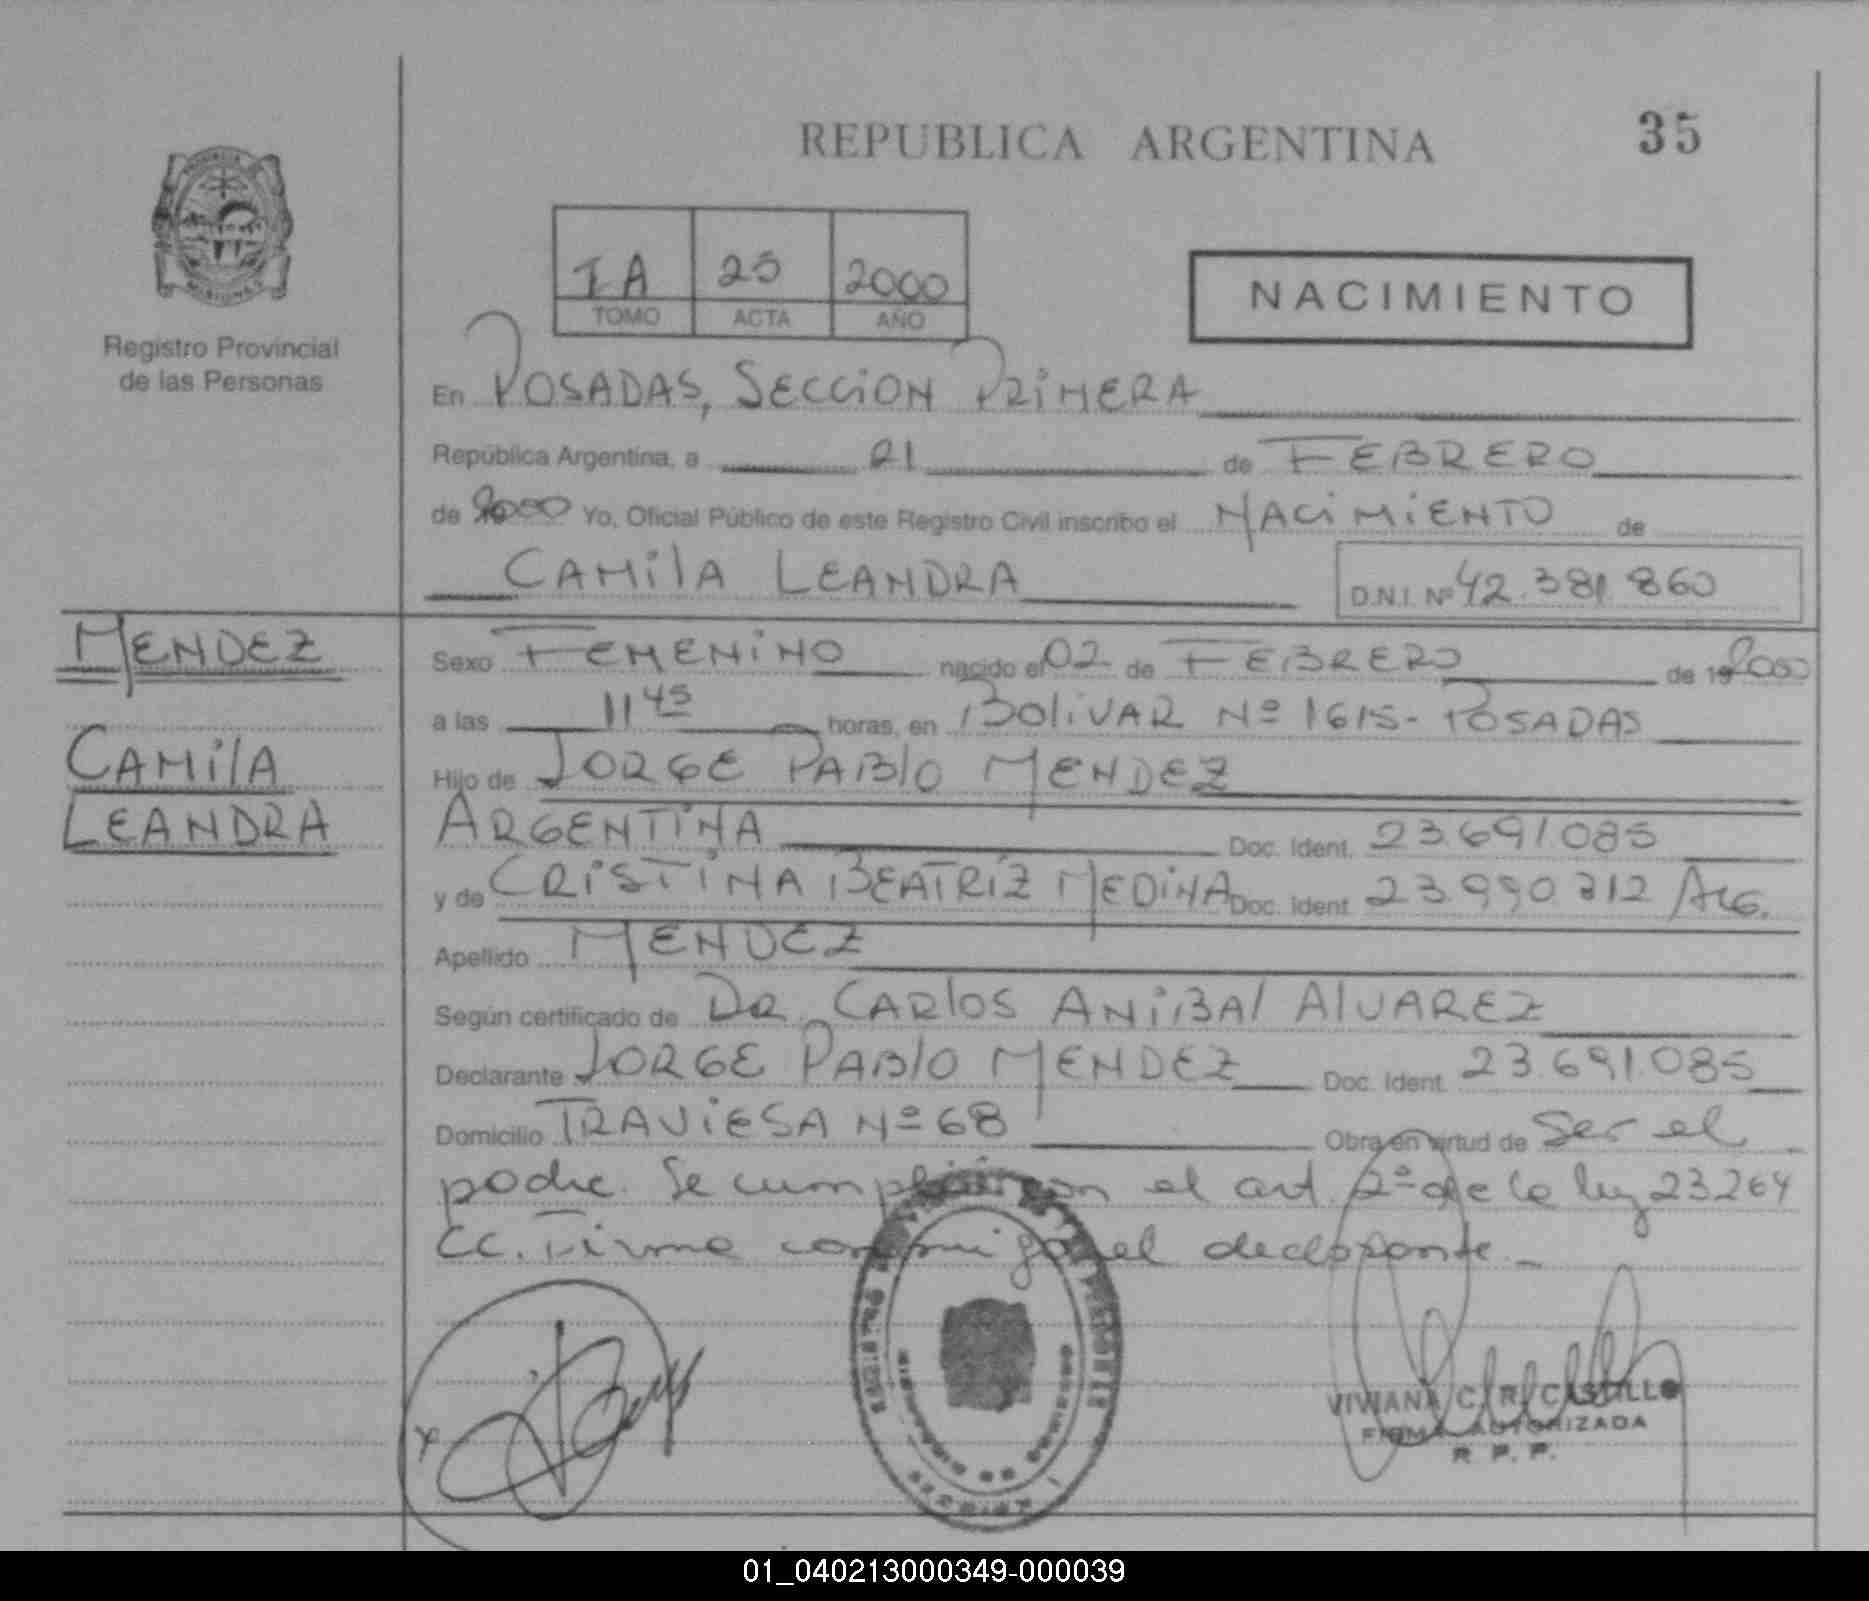 REPUBLICA ARGENTINA
35
IA 25 2000
TOMO ACTA AÑO
NACIMIENTO
Registro Provincial
de las Personas
En POSADAS, SECCION PRIMERA
República Argentina, a 21 de FEBRERO
de 2000 Yo, Oficial Público de este Registro Civil inscribo el NACIMIENTO de
CAMILA LEANDRA D.N.I. Nº 42.381.860
MENDEZ
CAMILA
LEANDRA
Sexo FEMENINO nacido el 02 de FEBRERO de 2000
a las 11 45 horas, en BOLIVAR Nº 1615 - POSADAS
Hijo de JORGE PABLO MENDEZ
ARGENTINA Doc. Ident. 23.691.085
y de CRISTINA BEATRIZ MEDINA Doc. Ident. 23.990.312 ARG.
Apellido MENDEZ
Según certificado de DR. CARLOS ANIBAL ALVAREZ
Declarante JORGE PABLO MENDEZ Doc. Ident. 23.691.085
Domicilio TRAVIESA Nº 68 Obra en virtud de Ser el
padre. Se cumplió con el art. 2º de la ley 23264
CC. Firma conmigo el declarante._
VIVIANA C. R. CASTILLO
FIRMA AUTORIZADA
R. P. P.
01_040213000349-000039